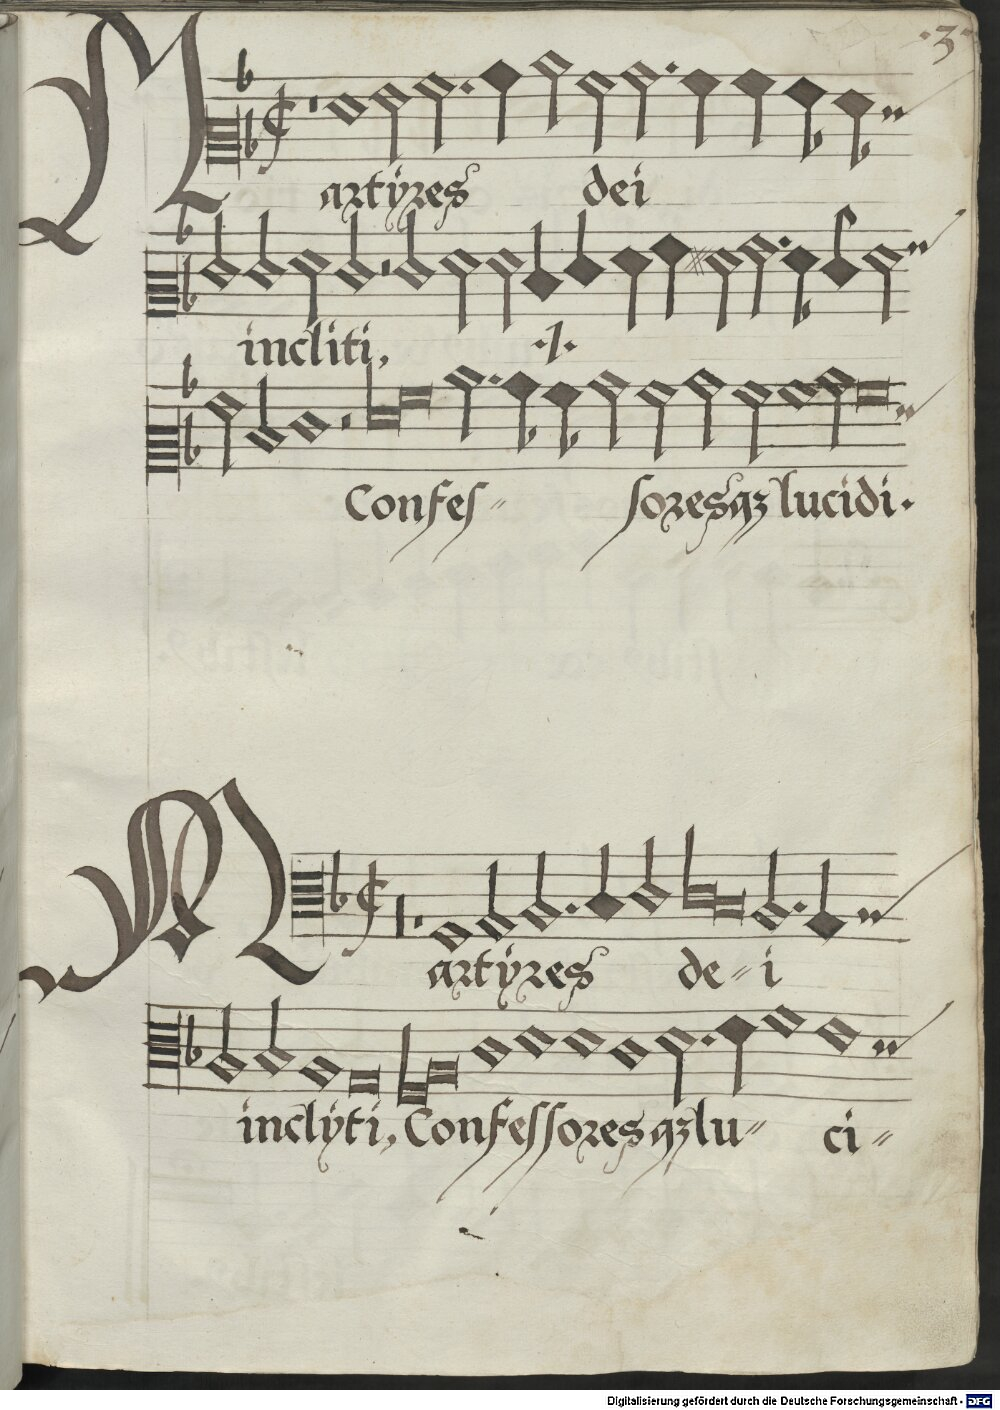 ·3·
Martÿres dei
incliti, ·/·
Confes= soresqꝫ lucidi.
Martÿres de=i
inclÿti, Confessores qꝫ lu= ci=
Digitalisierung gefördert durch die Deutsche Forschungsgemeinschaft - DFG